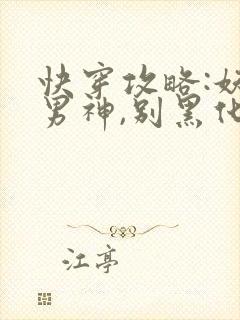 快穿攻略:妖
男神,别黑化
江亭